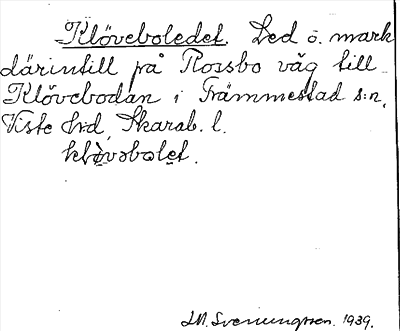 Klöveboledet. Led o. mark
därintill på Rossbo väg till
Klövebodan i Främmestad s:n,
Viste hd, Skarab. l.
klòvəbolet.
J.M. Svenungsson. 1939.